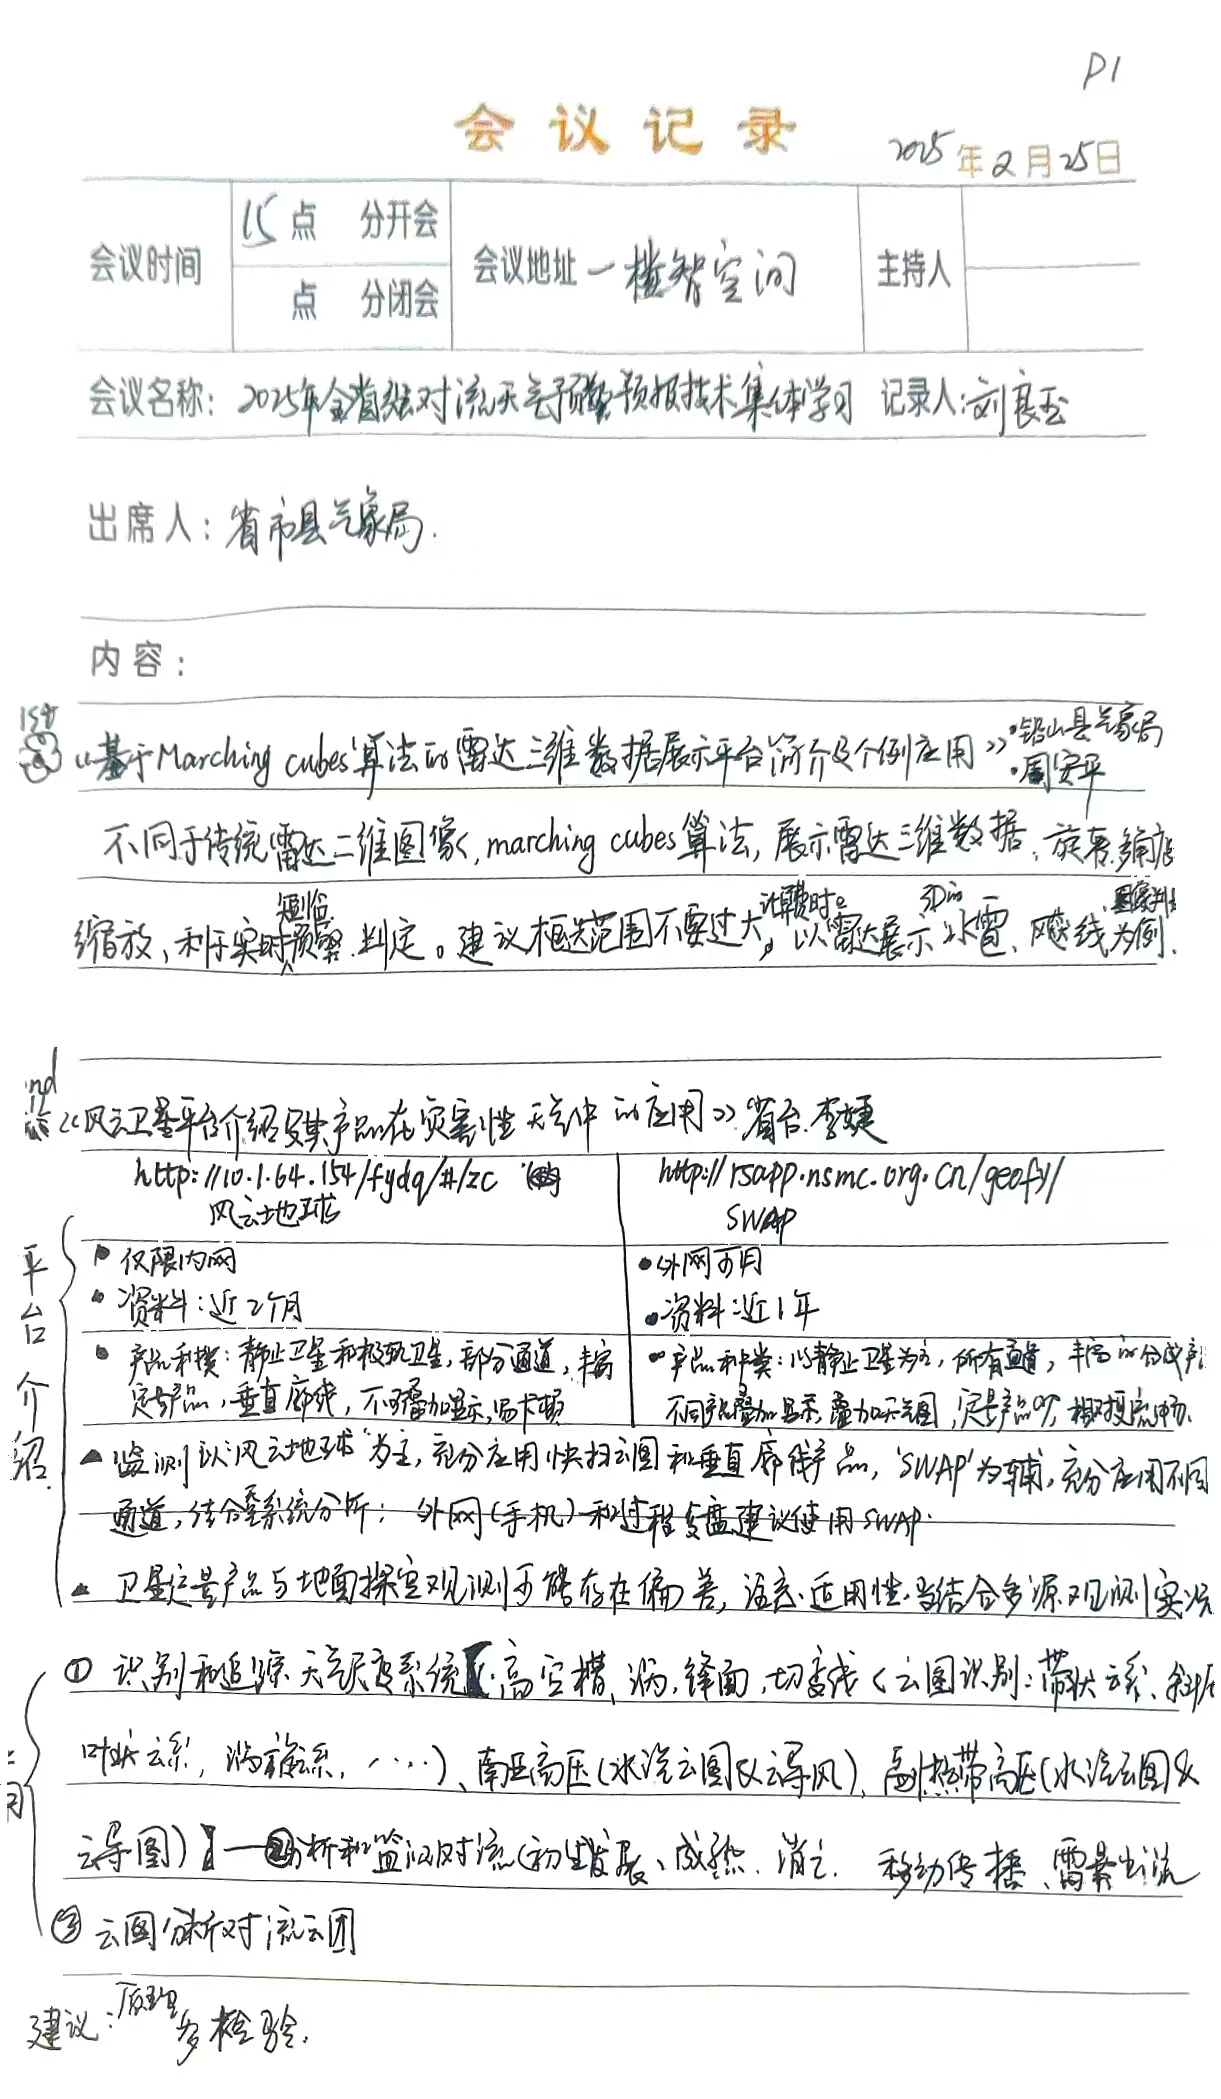 P1
会议记录
2025年2月25日
会议时间 15点 分开会 会议地址 一楼智空间 主持人
点 分闭会
会议名称: 2025年全省强对流天气预警预报技术集体学习 记录人:刘良玉
出席人: 省市县气象局.
内容:
1st
《基于Marching cubes算法的雷达三维数据展示平台简介及个例应用》 ·铅山县气象局
·周安平
不同于传统雷达二维图像, marching cubes算法, 展示雷达三维数据、旋转、
短临 计算费时。 3D的
缩放、利于实时预警.判定。建议框选范围不要过大, 以雷达展示冰雹、飑线为例.
nd
《风云卫星平台介绍及其产品在灾害性天气中的应用》 省台.李婕
http://10.1.64.154/fydq/#/zc http://rsapp.nsmc.org.cn/geofy/
风云地球 SWAP
平台介绍
• 仅限内网 • 外网可用
• 资料:近2个月 • 资料:近1年
• 产品种类:静止卫星和极轨卫星, 部分通道, 丰富 • 产品种类:以静止卫星为主, 所有通道, 丰富的合成产
定量产品, 垂直廓线, 不可叠加显示, 易卡顿 不同产品叠加显示, 叠加天气图, 定量产品少, 相对更流畅.
▲ 监测以“风云地球”为主, 充分应用快扫云图和垂直廓线产品, 'SWAP'为辅, 充分应用不同
通道, 结合系统分析; 外网(手机)和过程复盘建议使用SWAP.
▲ 卫星定量产品与地面探空观测可能存在偏差, 注意适用性.当结合多源观测实况
① 识别和追踪天气尺度系统:高空槽、涡, 锋面, 切变线(云图识别:带状云系、斜压
叶状云系, 涡旋云系, ....)、南亚高压(水汽云图&云导风), 副热带高压(水汽云图&
云导图) ②分析和监测对流(初生发展、成熟、消亡. 移动传播、雷暴出流
③ 云图分析对流云团
原理
建议: 多检验.